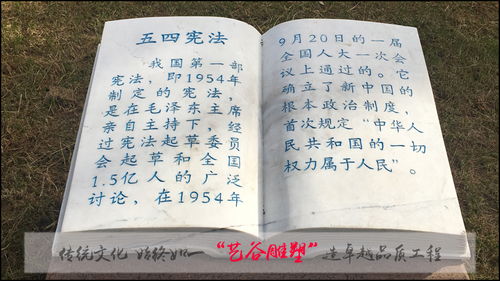 五四宪法
我国第一部
宪法，即1954年
制定的宪法，
是在毛泽东主席
亲自主持下，经
过宪法起草委员
会起草和全国
1.5亿人的广泛
讨论，在1954年
9月20日的一届
全国人大一次会
议上通过的。它
确立了新中国的
根本政治制度，
首次规定“中华人
民共和国的一切
权力属于人民”。
传统文化 始终如一 “艺谷雕塑” 造卓越品质工程